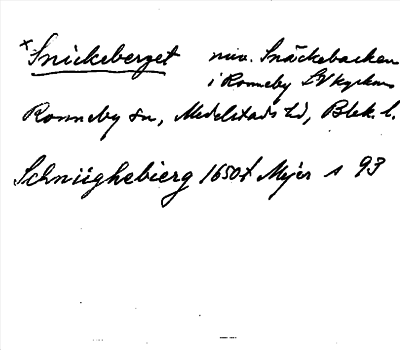 *Snickeberget nuv. Snäckebacken
i Ronneby SV kyrkan
Ronneby sn, Medelstads hd, Blek. l.
Schniighebierg 1650t Mejer s 93